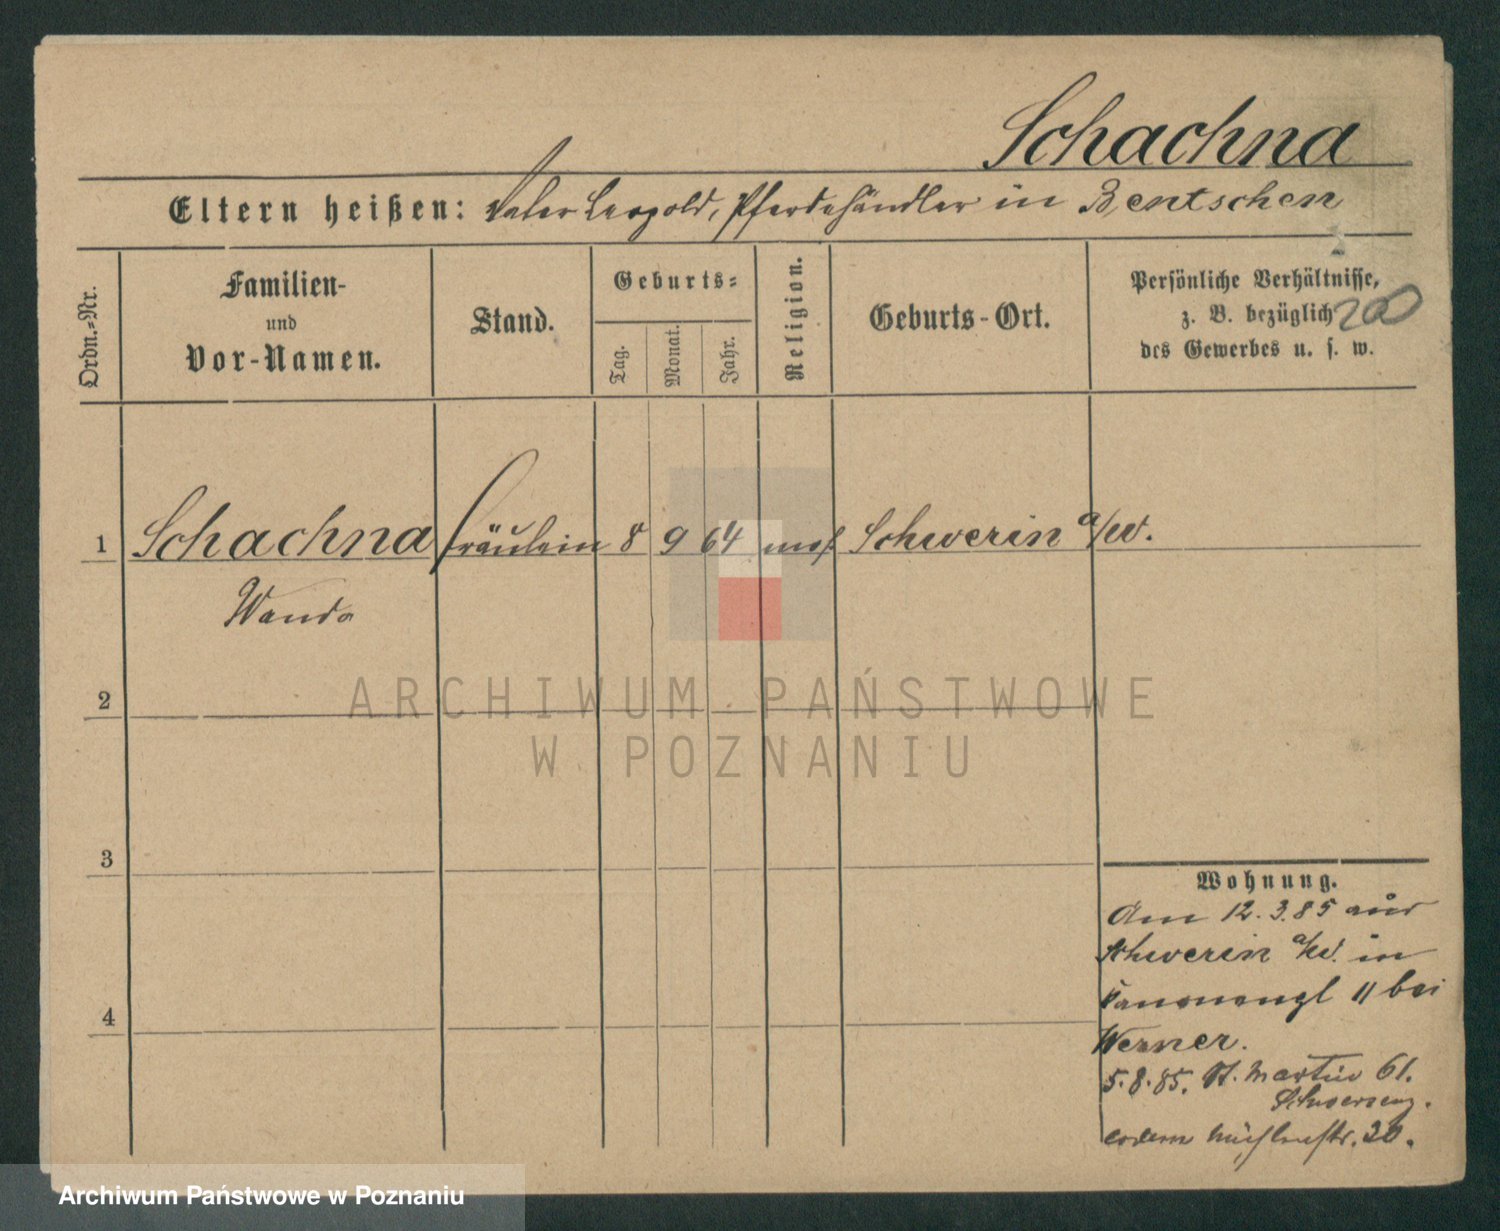 Schachna
Eltern heißen: Vater Leopold, Pferdehändler in Bentschen
Ordn.-Nr.
Familien-
und
Vor-Namen.
Stand.
Geburts-
Tag.
Monat.
Jahr.
Religion.
Geburts-Ort.
Persönliche Verhältnisse,
z. B. bezüglich
des Gewerbes u. s. w.
200
1 Schachna Fräulein 8 9 64 mos Schwerin a/W.
Wanda
2
3
4
Wohnung.
Am 12.3.85 aus
Schwerin a/W. in
Kanonenpl 11 bei
Werner.
5.8.85. St. Martin 61.
Schwersenz.
eodem Mühlenstr. 20.
ARCHIWUM PAŃSTWOWE
W POZNANIU
Archiwum Państwowe w Poznaniu